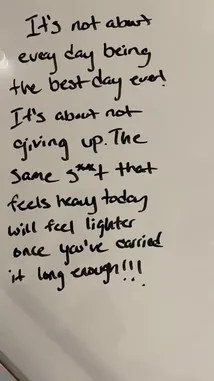 It's not about
every day being
the best day ever!
It's about not
giving up. The
same s**t that
feels heavy today
will feel lighter
once you've carried
it long enough!!!